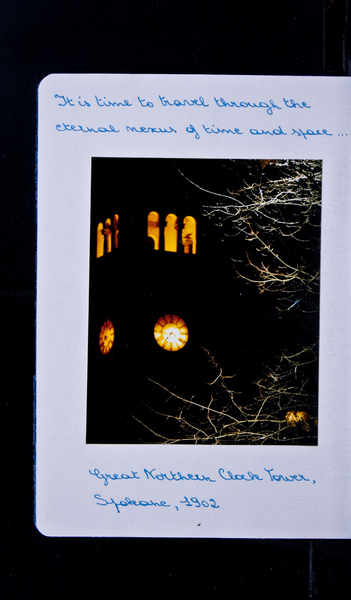 It is time to travel through the
eternal nexus of time and space ...
Great Northern Clock Tower,
Spokane, 1902